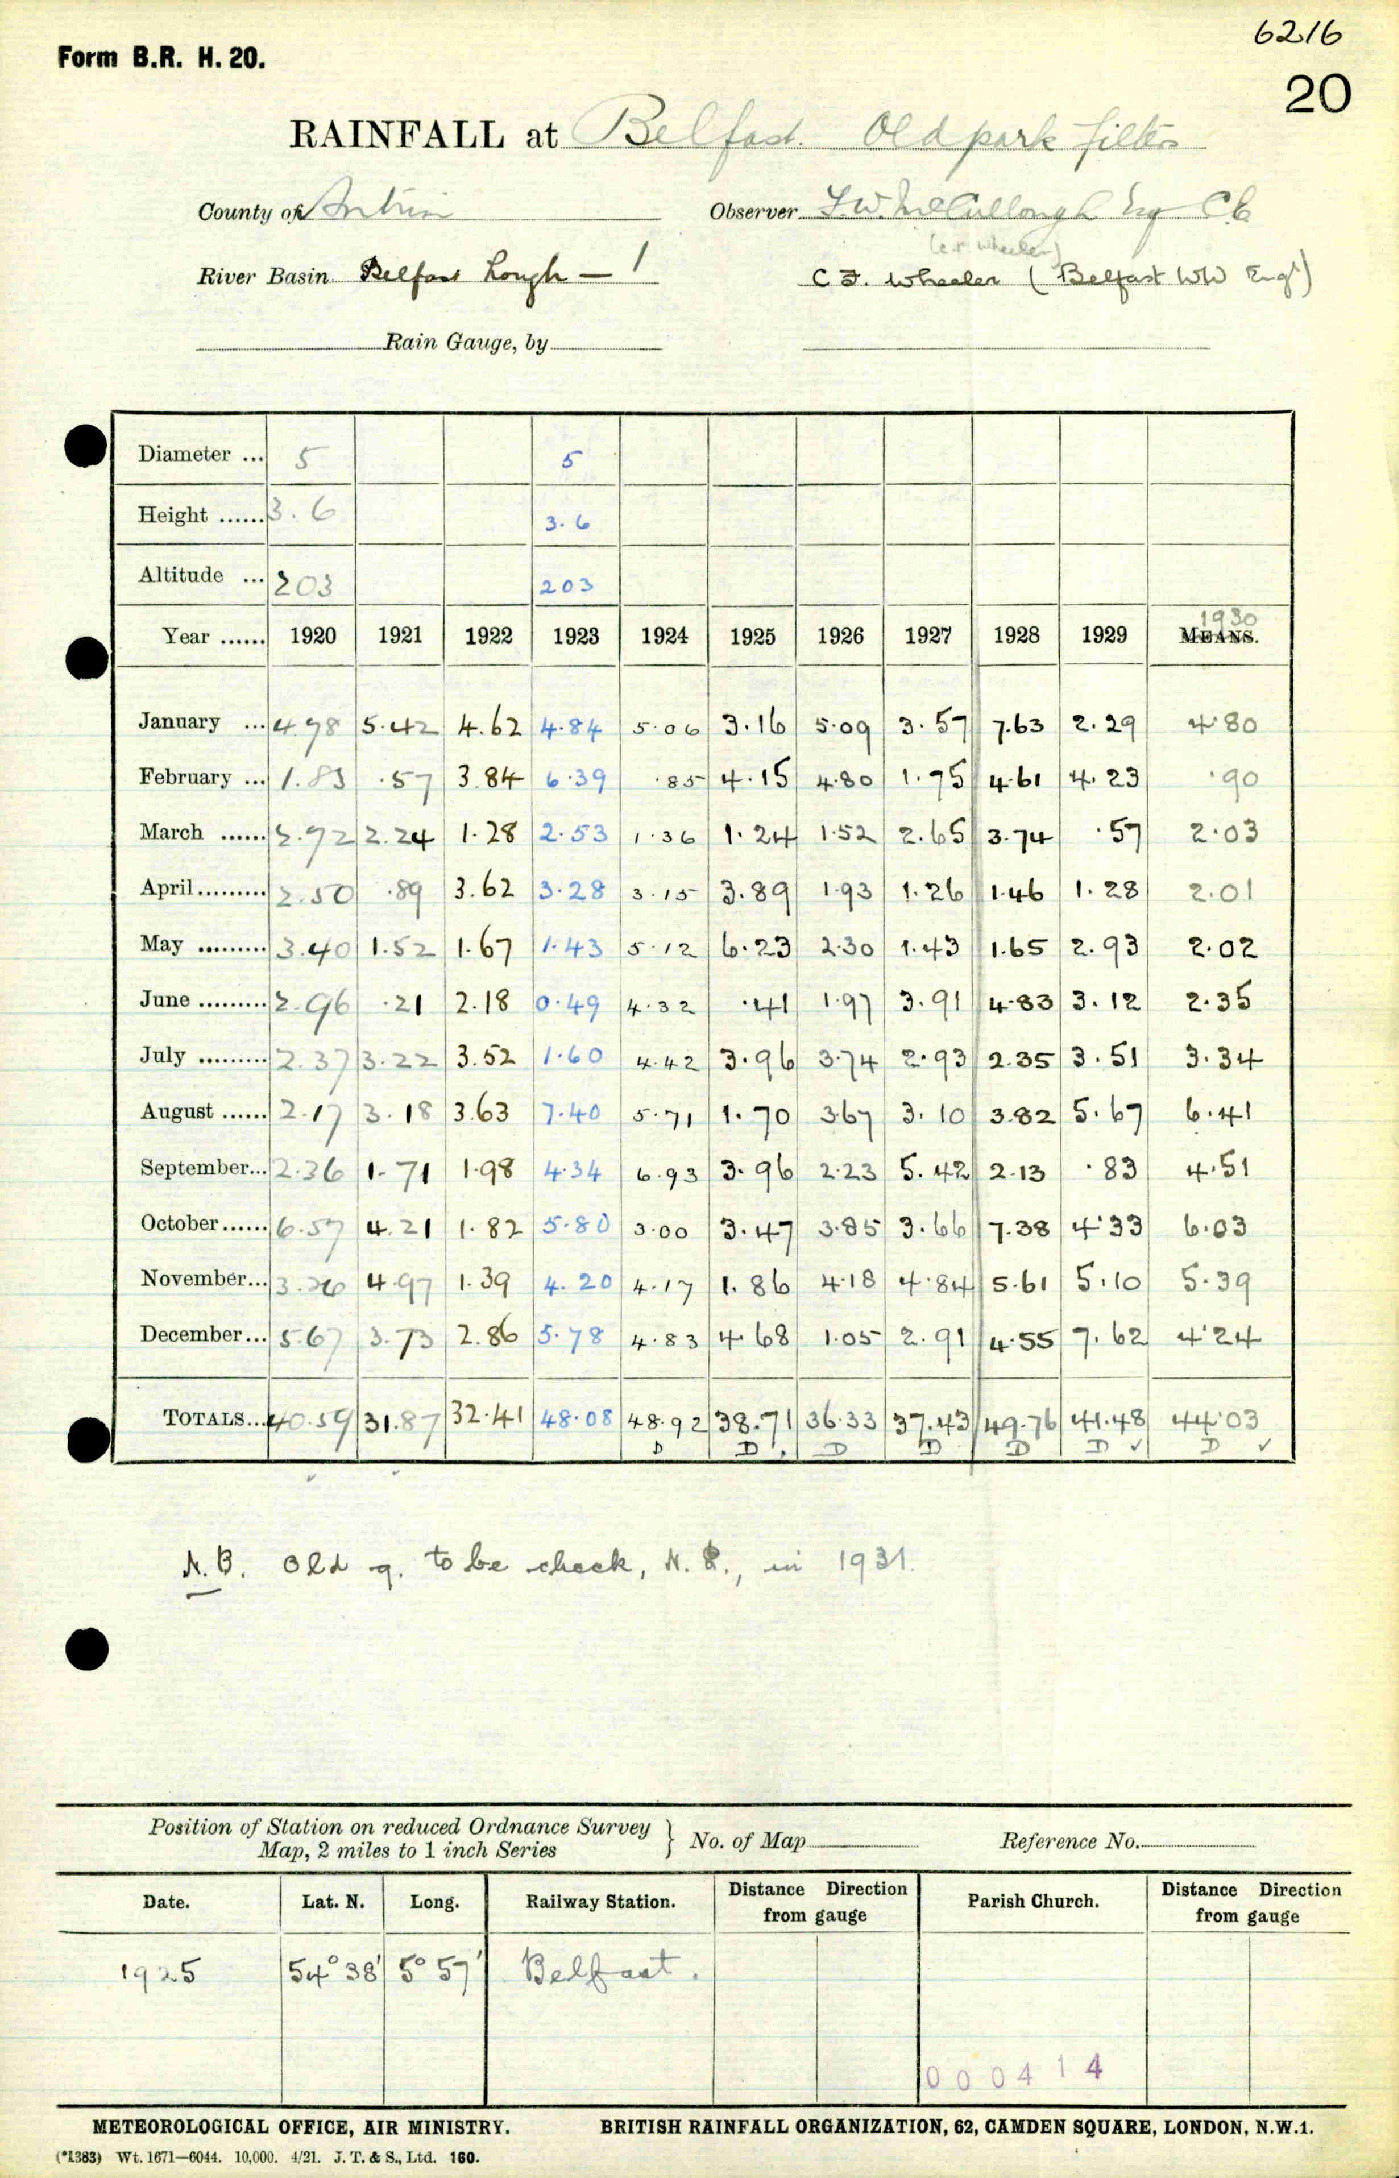 6216
Form B.R. H. 20.
20
RAINFALL at Belfast. Oldpark filters
County of Antrim Observer F.W. McCullough Esq CE
(C.F. Wheeler)
River Basin Belfast Lough — 1 C F. Wheeler (Belfast WW Engr)
Rain Gauge, by
Diameter ... 5 5
Height ...... 3.6 3.6
Altitude ... 203 203
1930
Year ...... 1920 1921 1922 1923 1924 1925 1926 1927 1928 1929 MEANS.
January ... 4.98 5.42 4.62 4.84 5.06 3.16 5.09 3.57 7.63 2.29 4.80
February ... 1.83 .57 3.84 6.39 .85 4.15 4.80 1.75 4.61 4.23 .90
March ...... 2.92 2.24 1.28 2.53 1.36 1.24 1.52 2.65 3.74 .57 2.03
April......... 2.50 .89 3.62 3.28 3.15 3.89 1.93 1.26 1.46 1.28 2.01
May ......... 3.40 1.52 1.67 1.43 5.12 6.23 2.30 1.43 1.65 2.93 2.02
June ......... 2.96 .21 2.18 0.49 4.32 .41 1.97 3.91 4.83 3.12 2.35
July ......... 2.37 3.22 3.52 1.60 4.42 3.96 3.74 2.93 2.35 3.51 3.34
August ...... 2.17 3.18 3.63 7.40 5.71 1.70 3.67 3.10 3.82 5.67 6.41
September... 2.36 1.71 1.98 4.34 6.93 3.96 2.23 5.42 2.13 .83 4.51
October...... 6.57 4.21 1.82 5.80 3.00 3.47 3.85 3.66 7.38 4.33 6.03
November... 3.26 4.97 1.39 4.20 4.17 1.86 4.18 4.84 5.61 5.10 5.39
December... 5.67 3.73 2.86 5.78 4.83 4.68 1.05 2.91 4.55 7.62 4.24
TOTALS... 40.59 31.87 32.41 48.08 48.92 38.71 36.33 37.43 49.76 41.48 44.03
D D D D D D ✓ D ✓
N.B. Old g. to be check, N.R., in 1931.
Position of Station on reduced Ordnance Survey
Map, 2 miles to 1 inch Series } No. of Map Reference No.
Date. Lat. N. Long. Railway Station. Distance Direction from gauge Parish Church. Distance Direction from gauge
1925 54° 38' 5° 57' Belfast.
000414
METEOROLOGICAL OFFICE, AIR MINISTRY. BRITISH RAINFALL ORGANIZATION, 62, CAMDEN SQUARE, LONDON, N.W.1.
(*1383) Wt. 1671—6044. 10,000. 4/21. J. T. & S., Ltd. 160.